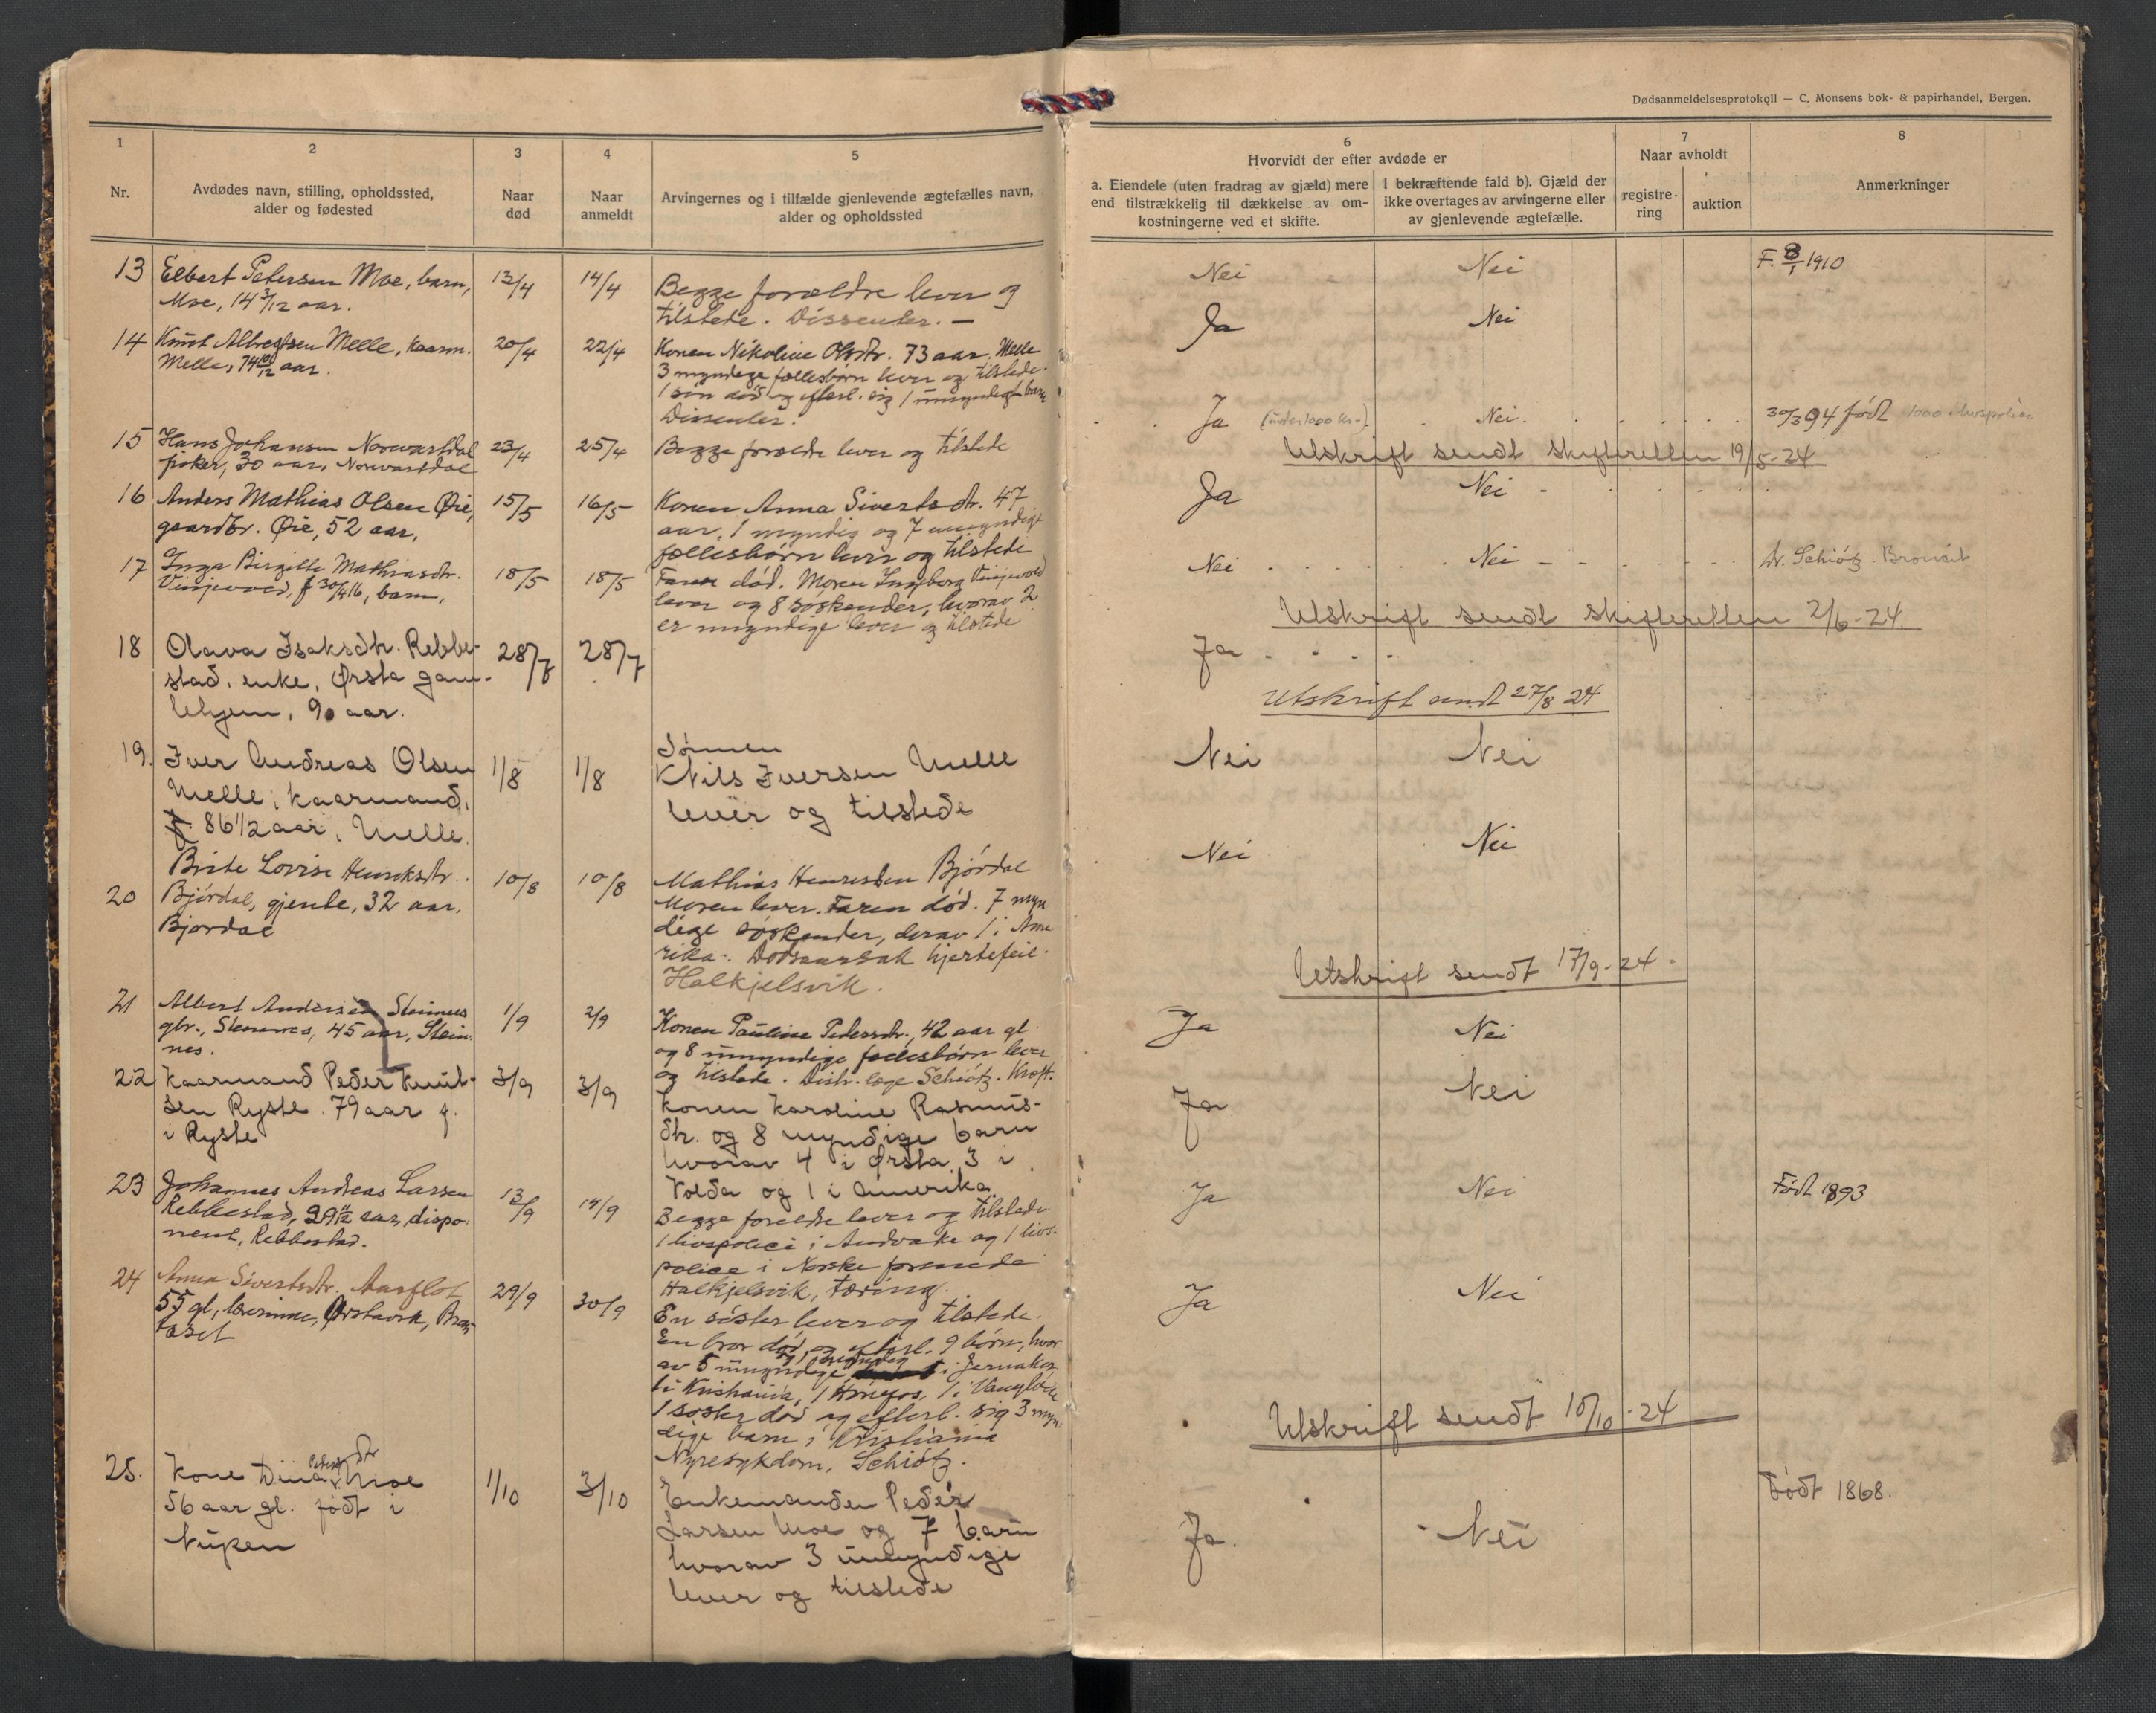 Dødsanmeldelsesprotokoll — C. Monsens bok- & papirhandel, Bergen.
1
Nr.
2
Avdødes navn, stilling, opholdssted,
alder og fødested
3
Naar
død
4
Naar
anmeldt
5
Arvingernes og i tilfælde gjenlevende ægtefælles navn,
alder og opholdssted
6
Hvorvidt der efter avdøde er
a. Eiendele (uten fradrag av gjæld) mere
end tilstrækkelig til dækkelse av om-
kostningerne ved et skifte.
I bekræftende fald b). Gjæld der
ikke overtages av arvingerne eller
av gjenlevende ægtefælle.
7
Naar avholdt
registre-
ring
auktion
8
Anmerkninger
13
Elbert Petersen Moe, barn,
Moe, 14 3/12 aar.
13/4
14/4
Begge forældre lever og
tilstede. Dissenter. —
Nei
Nei
F. 8/1 1910
14
Knut Albregtsen Melle, kaarm.
Melle, 74 10/12 aar.
20/4
22/4
Konen Nikoline Olsdtr. 73 aar. Melle
3 myndige fællesbørn lever og tilstede.
1 søn død og efterl. sig 1 umyndigt barn
Dissenter.
Ja
Nei
15
Hans Johansen Novvastdal
fisker, 30 aar, Novvastdal
23/4
25/4
Begge forældre lever og tilstede
Ja (under 1000 Kr.-)
Nei.
30/3 94 født 1000 livspolice
Utskrift sendt skifteretten 19/5-24
16
Anders Mathias Olsen Øie,
gaardbr. Øie, 52 aar,
15/5
16/5
Konen Anna Sivertsdtr. 47
aar, 1 myndig og 7 umyndige
fællesbørn lever og tilstede
Ja
Nei -
17
Inga Birgitte Mathiasdtr.
Vinjevold, f 30/4 16, barn,
18/5
18/5
Faren død. Moren Ingeborg Vinjevold
lever og 8 søskender, hvorav 2
er myndige lever og tilstede
Nei
Nei
Dr. Schiøtz.
Utskrift sendt skifteretten 2/6-24.
18
Olava Isaksdtr. Rebbe-
stad, enke, Ørsta gam-
lehjem, 90 aar.
28/7
28/7
Ja
Utskrift sendt 27/8 24
19.
Iver Andreas Olsen
Melle, kaarmand,
f. 86 1/2 aar, Melle.
1/8
1/8
Sønnen
Nils Iversen Melle
lever og tilstede
Nei
Nei
20
Brite Lovise Henriksdtr.
Bjørdal, gjente, 32 aar,
Bjørdal
10/8
10/8
Mathias Henriksen Bjørdal
Moren lever. Faren død. 7 myn
dige søskender, derav 1 i Ame
rika-. Dødsaarsak hjertefeil.
Halkjelsvik.
Nei
Nei
Utskrift sendt 17/9-24-
21
Albert Andersen Steinnes
gbr., Steinnes, 45 aar, Stein-
nes.
1/9
2/9
Konen Pauline Pedersdtr., 42 aar gl.
og 8 umyndige fællesbørn lever
og tilstede. Distr. læge Schiøtz. Kræft.
Ja
Nei
22
Kaarmand Peder Knut-
sen Ryste. 79 aar f.
i Ryste
3/9
3/9
Konen Karoline Rasmus-
dtr. og 8 myndige barn
hvorav 4 i Ørsta, 3 i
Volda og 1 i Amerika
Ja
Nei
23
Johannes Andreas Larsen
Rebbestad, 29 11/12 aar, dispo-
nent, Rebbestad.
13/9
14/9
Begge forældre lever og tilstede
1 livspolice i Andvake og 1 livs-
police i Norske forenede
Halkjelsvik, tæring.
Ja
Nei
Født 1893
24
Anna Sivertsdtr. Aarflot
55 gl, lærerinde, Ørstavik,
29/9
30/9
En søster lever og tilstede.
En bror død og efterl. 9 børn, hvor
av 5 umyndige
1 i Kristiania, 1 Hønefos, 1 i
1 søster død og efterl. sig 3 myn-
dige barn i Kristiania
Nyresykdom, Schiøtz.
Ja
Nei
Utskrift sendt 10/10-24
25.
Kone Dina Pedersdtr Moe
56 aar gl. født i
Nupen
1/10
3/10
Enkemanden Peder
Larsen Moe og 7 barn
hvorav 3 umyndige
lever og tilstede
Ja.
Nei
Født 1868.